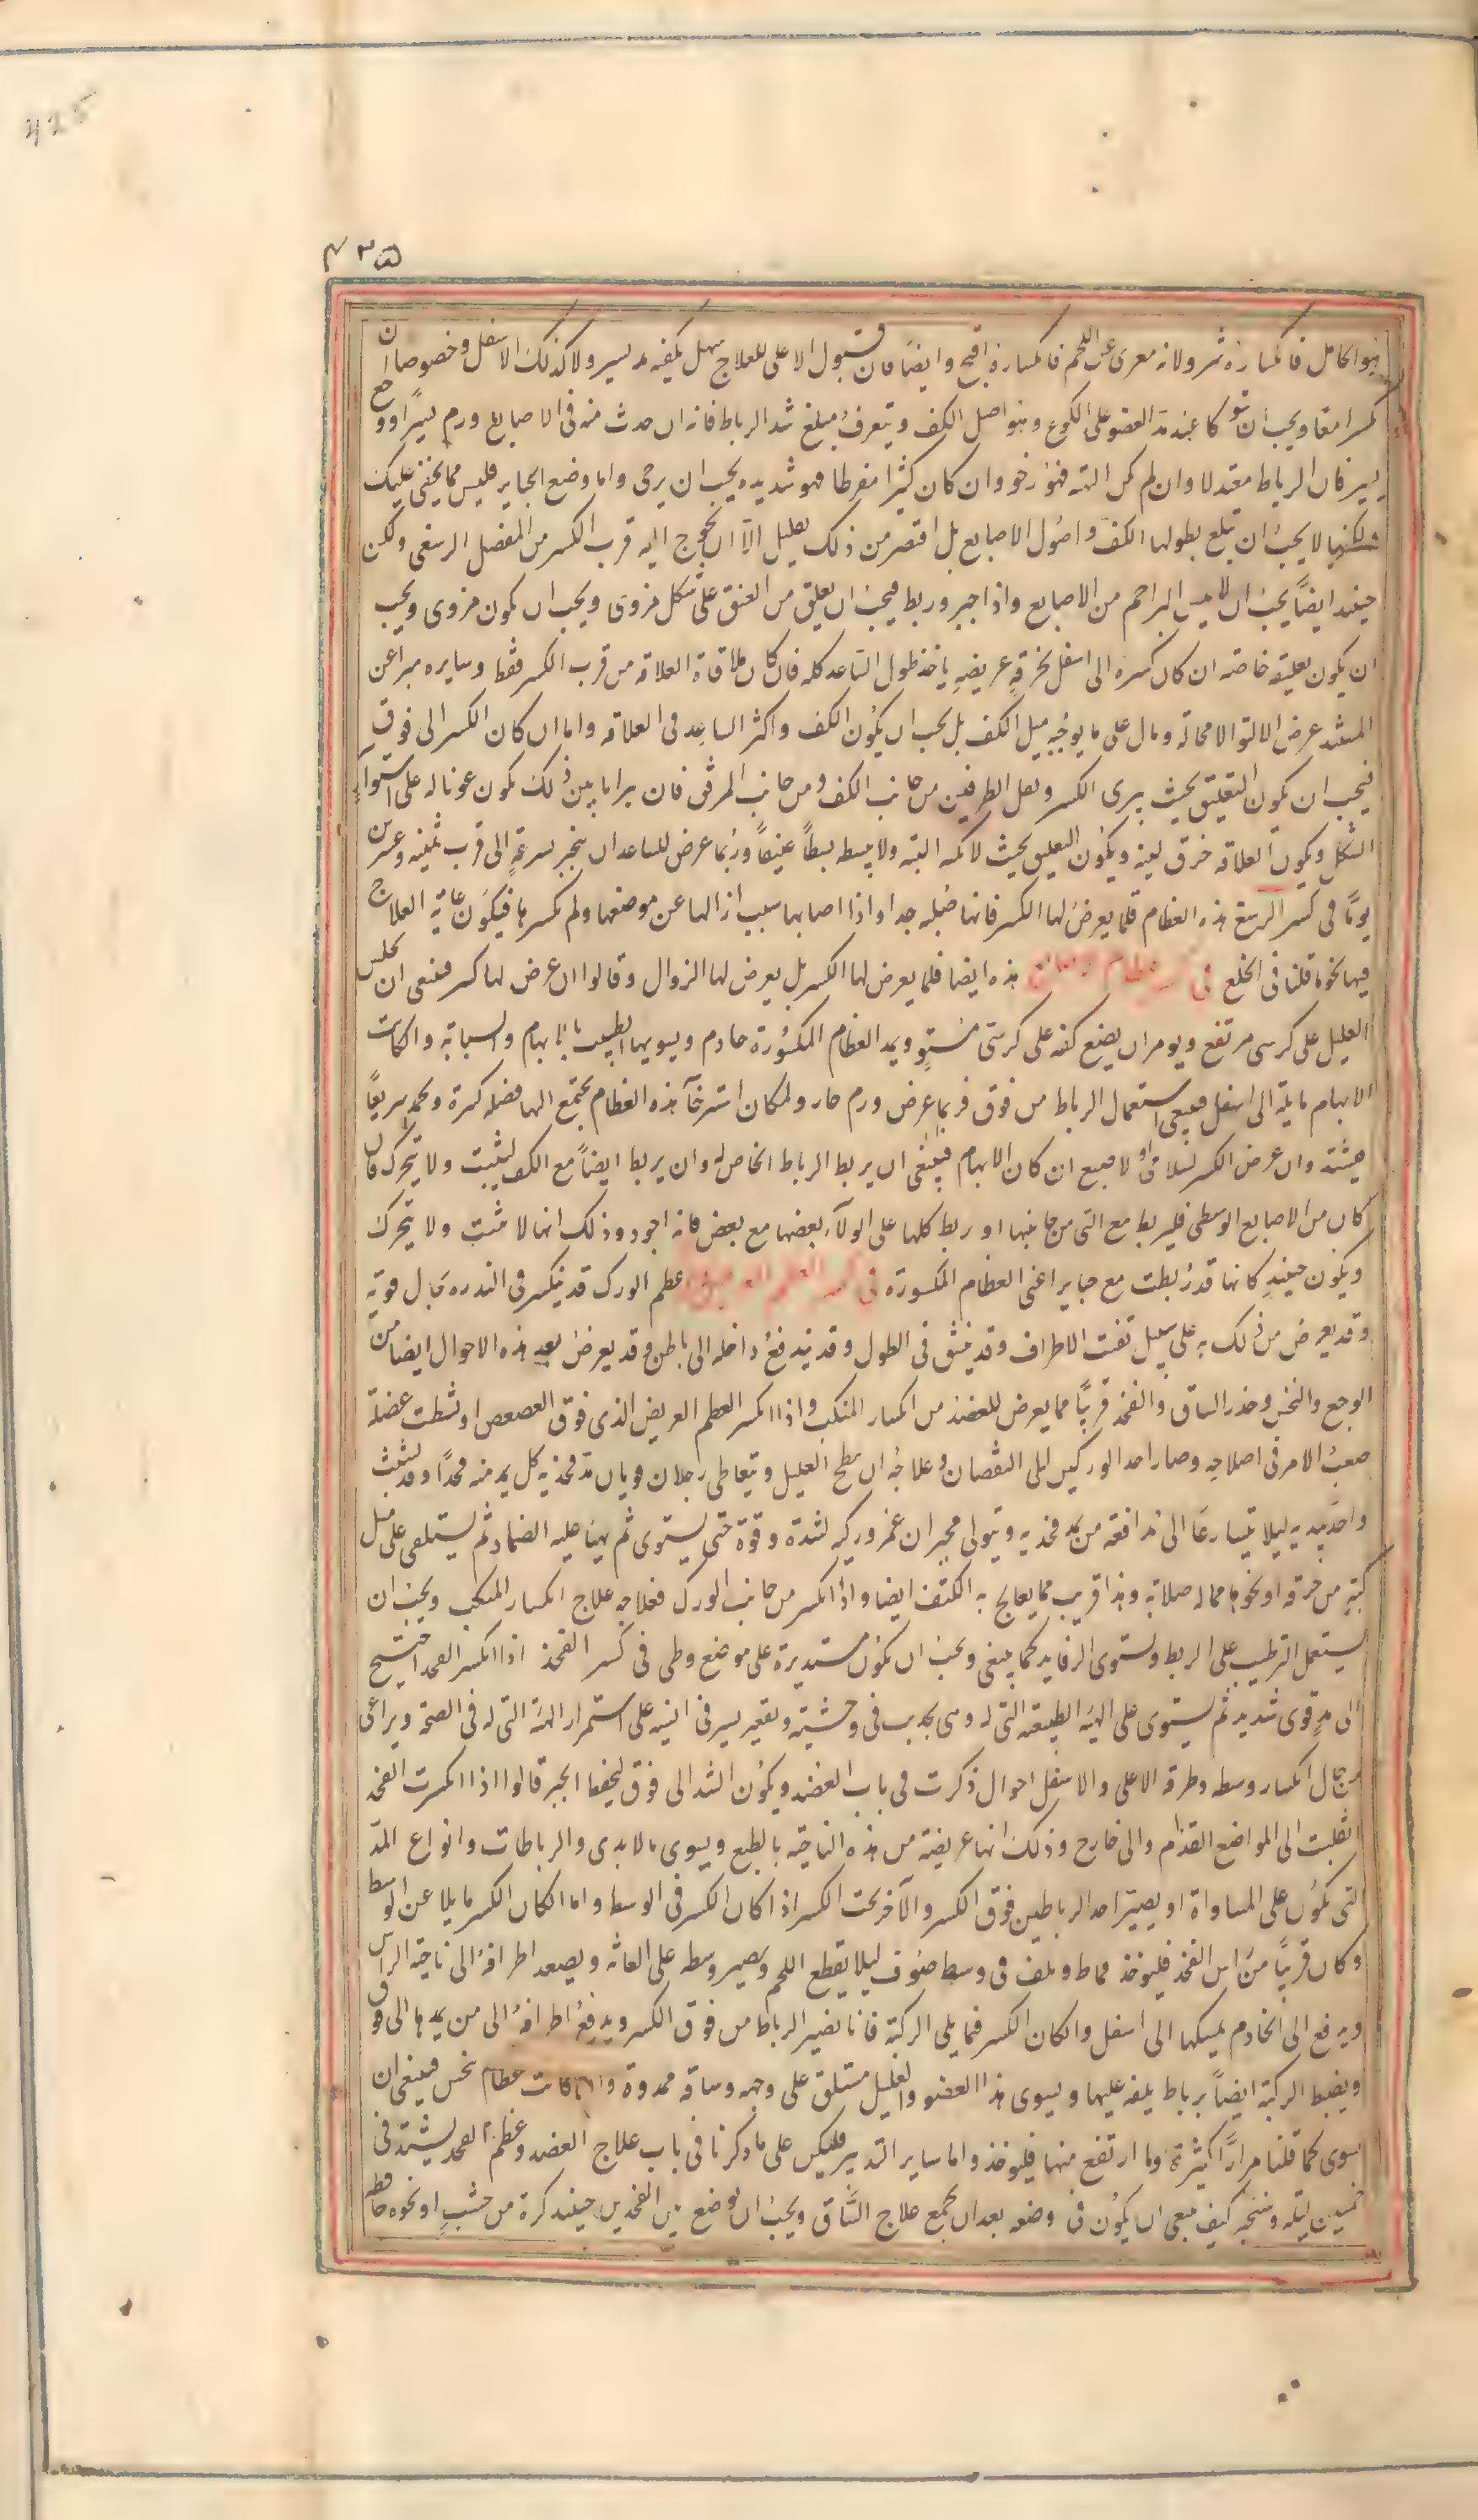 425
٤٣٥
هو الحامل فانكساره شر ولانه معرى عن اللحم فانكساره اقبح وايضا فان قبول الاعلى للعلاج سهل يكفيه مد يسير ولا كذلك الاسفل وخصوصا ان
كسرا معا ويجب ان عند مد العضو على الكوع وهو اصل الكف ويتعرف مبلغ شد الرباط فانه ان حدث منه فى الاصابع ورم يسير او وجع
يسير فان الرباط معتدلا وان لم يكن البته فهو رخو وان كان كثيرا مفرطا فهو شديد يجب ان يرخى واما وضع الجباير فليس مما يخفى عليك
لكنها لا يجب ان تبلغ بطولها الكف واصول الاصابع بل اقتصر من ذلك بقليل الا ان يحوج اليه قرب الكسر من المفصل الرسغى ولكن
حينئذ ايضا يجب ان البراجم من الاصابع واذا جبر وربط فيجب ان يعلق من العنق على شكل مزوى ويجب ان يكون مزوى ويجب
ان يكون تعليقه خاصة ان كان كسره الى اسفل بخرقة عريضة ياخذ طول الساعد كله فان كان ملاقاة العلاقة من قرب الكسر فقط وسايره مبرا عن
المسند عرض الالتوا لا محالة ومال على ما يوجبه ميل الكف بل يجب ان يكون الكف واكثر الساعد فى العلاقه واما ان كان الكسر الى فوق
فيجب ان يكون التعليق بحيث يبرى الكسر الطرفين من جانب الكف ومن جانب المرفق فان يكون عونا له على استواء
الشكل ويكون العلاقه خرق لينة ويكون التعليق بحيث البته ولا يبسطه بسطا عنيفا وربما عرض للساعد ان ينجبر بسرعة الى قرب ثمنيه وعشرين
يوما فى كسر الرسغ هذه العظام قلما يعرض لها الكسر فانها صلبه جدا واذا اصابها سبب ازالها عن موضعها ولم يكسرها فيكون غاية العلاج
فيها نحو ما قلنا فى الخلع فى هذه ايضا قلما يعرض لها الكسر بل يعرض لها الزوال وقالوا ان عرض لها كسر فينبغى ان يجلس
العليل على كرسى مرتفع ويومر ان يضع كفه على كرسى مستو ويمد العظام المكسورة خادم ويسويها الطبيب بالابهام والسبابة وان كانت
الابهام مايلة الى اسفل فينبغى استعمال الرباط من فوق فربما عرض ورم حار ولمكان استرخآ هذه العظام يجتمع اليها فضله كثيرة سريعا
وان عرض الكسر لسلامى الاصبع ان كان الابهام فينبغى ان يربط الرباط الخاص له وان يربط ايضا مع الكف ليثبت ولا يتحرك فان
كان من الاصابع الوسطى فليربط مع التى من جانبها او ربط كلها على الولاء بعضها مع بعض فانه اجود وذلك انها تثبت ولا يتحرك
ويكون حينئذ كانها قد ربطت مع جباير اعنى العظام المكسورة فى كسر العظم العريض عظم الورك قد ينكسر فى الندره بحال قوية
وقد يعرض من ذلك به على سبيل تفتت الاطراف وقد ينشق فى الطول وقد يندفع داخله الى باطن وقد يعرض بعد هذه الاحوال ايضا من
الوجع والنخس وخدر الساق والفخذ قريبا مما يعرض للعضد من انكسار المنكب واذا انكسر العظم العريض الذى فوق العصعص او تشظت عضلة
صعب الامر فى اصلاحه وصار احد الوركين الى النقصان وعلاجه ان يبطح العليل ويتعاطى رجلان قويان مد فخذيه كل يمد منه فخذا وقد تشبث
واحد بيديه ليلا يتسارعا الى مدافعة من يمد فخذيه ويتولى مجبر ان غمز وركيه لشدة وقوة حتى يستوى ثم يهيا عليه الضماد ثم يستلقى على مثل
كبة من خرقه او نحوها مما له صلابة وهذا قريب مما يعالج به الكتف ايضا واذا انكسر من جانب الورك فعلاجه علاج انكسار المنكب ويجب ان
يستعمل الترطيب على الربط ويستوى الرفايد كما ينبغى ويجب ان يكون مستديرة على موضع وطى فى كسر الفخذ اذا انكسر الفخذ احتيج
الى مد قوى شديد ثم يستوى على الهيئة الطبيعة التى له وهى تحدب فى وحشيته وتقعير يسير فى انسيه على استمرار الهيئة التى له فى الصحة ويراعى
من حال انكسار وسطه وطرفه الاعلى والاسفل احوال ذكرت فى باب العضد ويكون الشد الى فوق ليحفظ الجبر قالوا اذا انكسرت الفخذ
انقلبت الى المواضع القدام والى خارج وذلك انها عريضة من هذه الناحية بالطبع ويسوى بالايدى والرباطات وانواع المد
التى يكون على المساواة او يصير احد الرباطين فوق الكسر والآخر تحت الكسر اذا كان الكسر فى الوسط واما ان كان الكسر مايلا عن الوسط
وكان قريبا من راس الفخذ فليوخذ قماط ويلف فى وسط صوف ليلا يقطع اللحم ويصير وسطه على العانة ويصعد اطرافه الى ناحية الراس
ويدفع الى الخادم يمسكها الى اسفل وان كان الكسر مما يلى الركبة فانا نصير الرباط من فوق الكسر ويدفع اطرافه الى من يمدها الى فوق
ويضبط الركبة ايضا برباط يلفه عليها ويسوى هذا العضو والعليل مستلق على وجهه وساقه ممدودة وان كانت عظام تنخس فينبغى ان
يسوى كما قلنا مرارا كثيرة وما ارتفع منها فليوخذ واما ساير التدبير فليكن على ما ذكرنا فى باب علاج العضد وعظم الفخذ يشتد فى
خمسين ليله وسنخبر كيف ينبغى ان يكون فى وضعه بعد ان نجمع علاج الساق ويجب ان يوضع بين الفخذين حينئذ كرة من خشب او نحوه حافظه